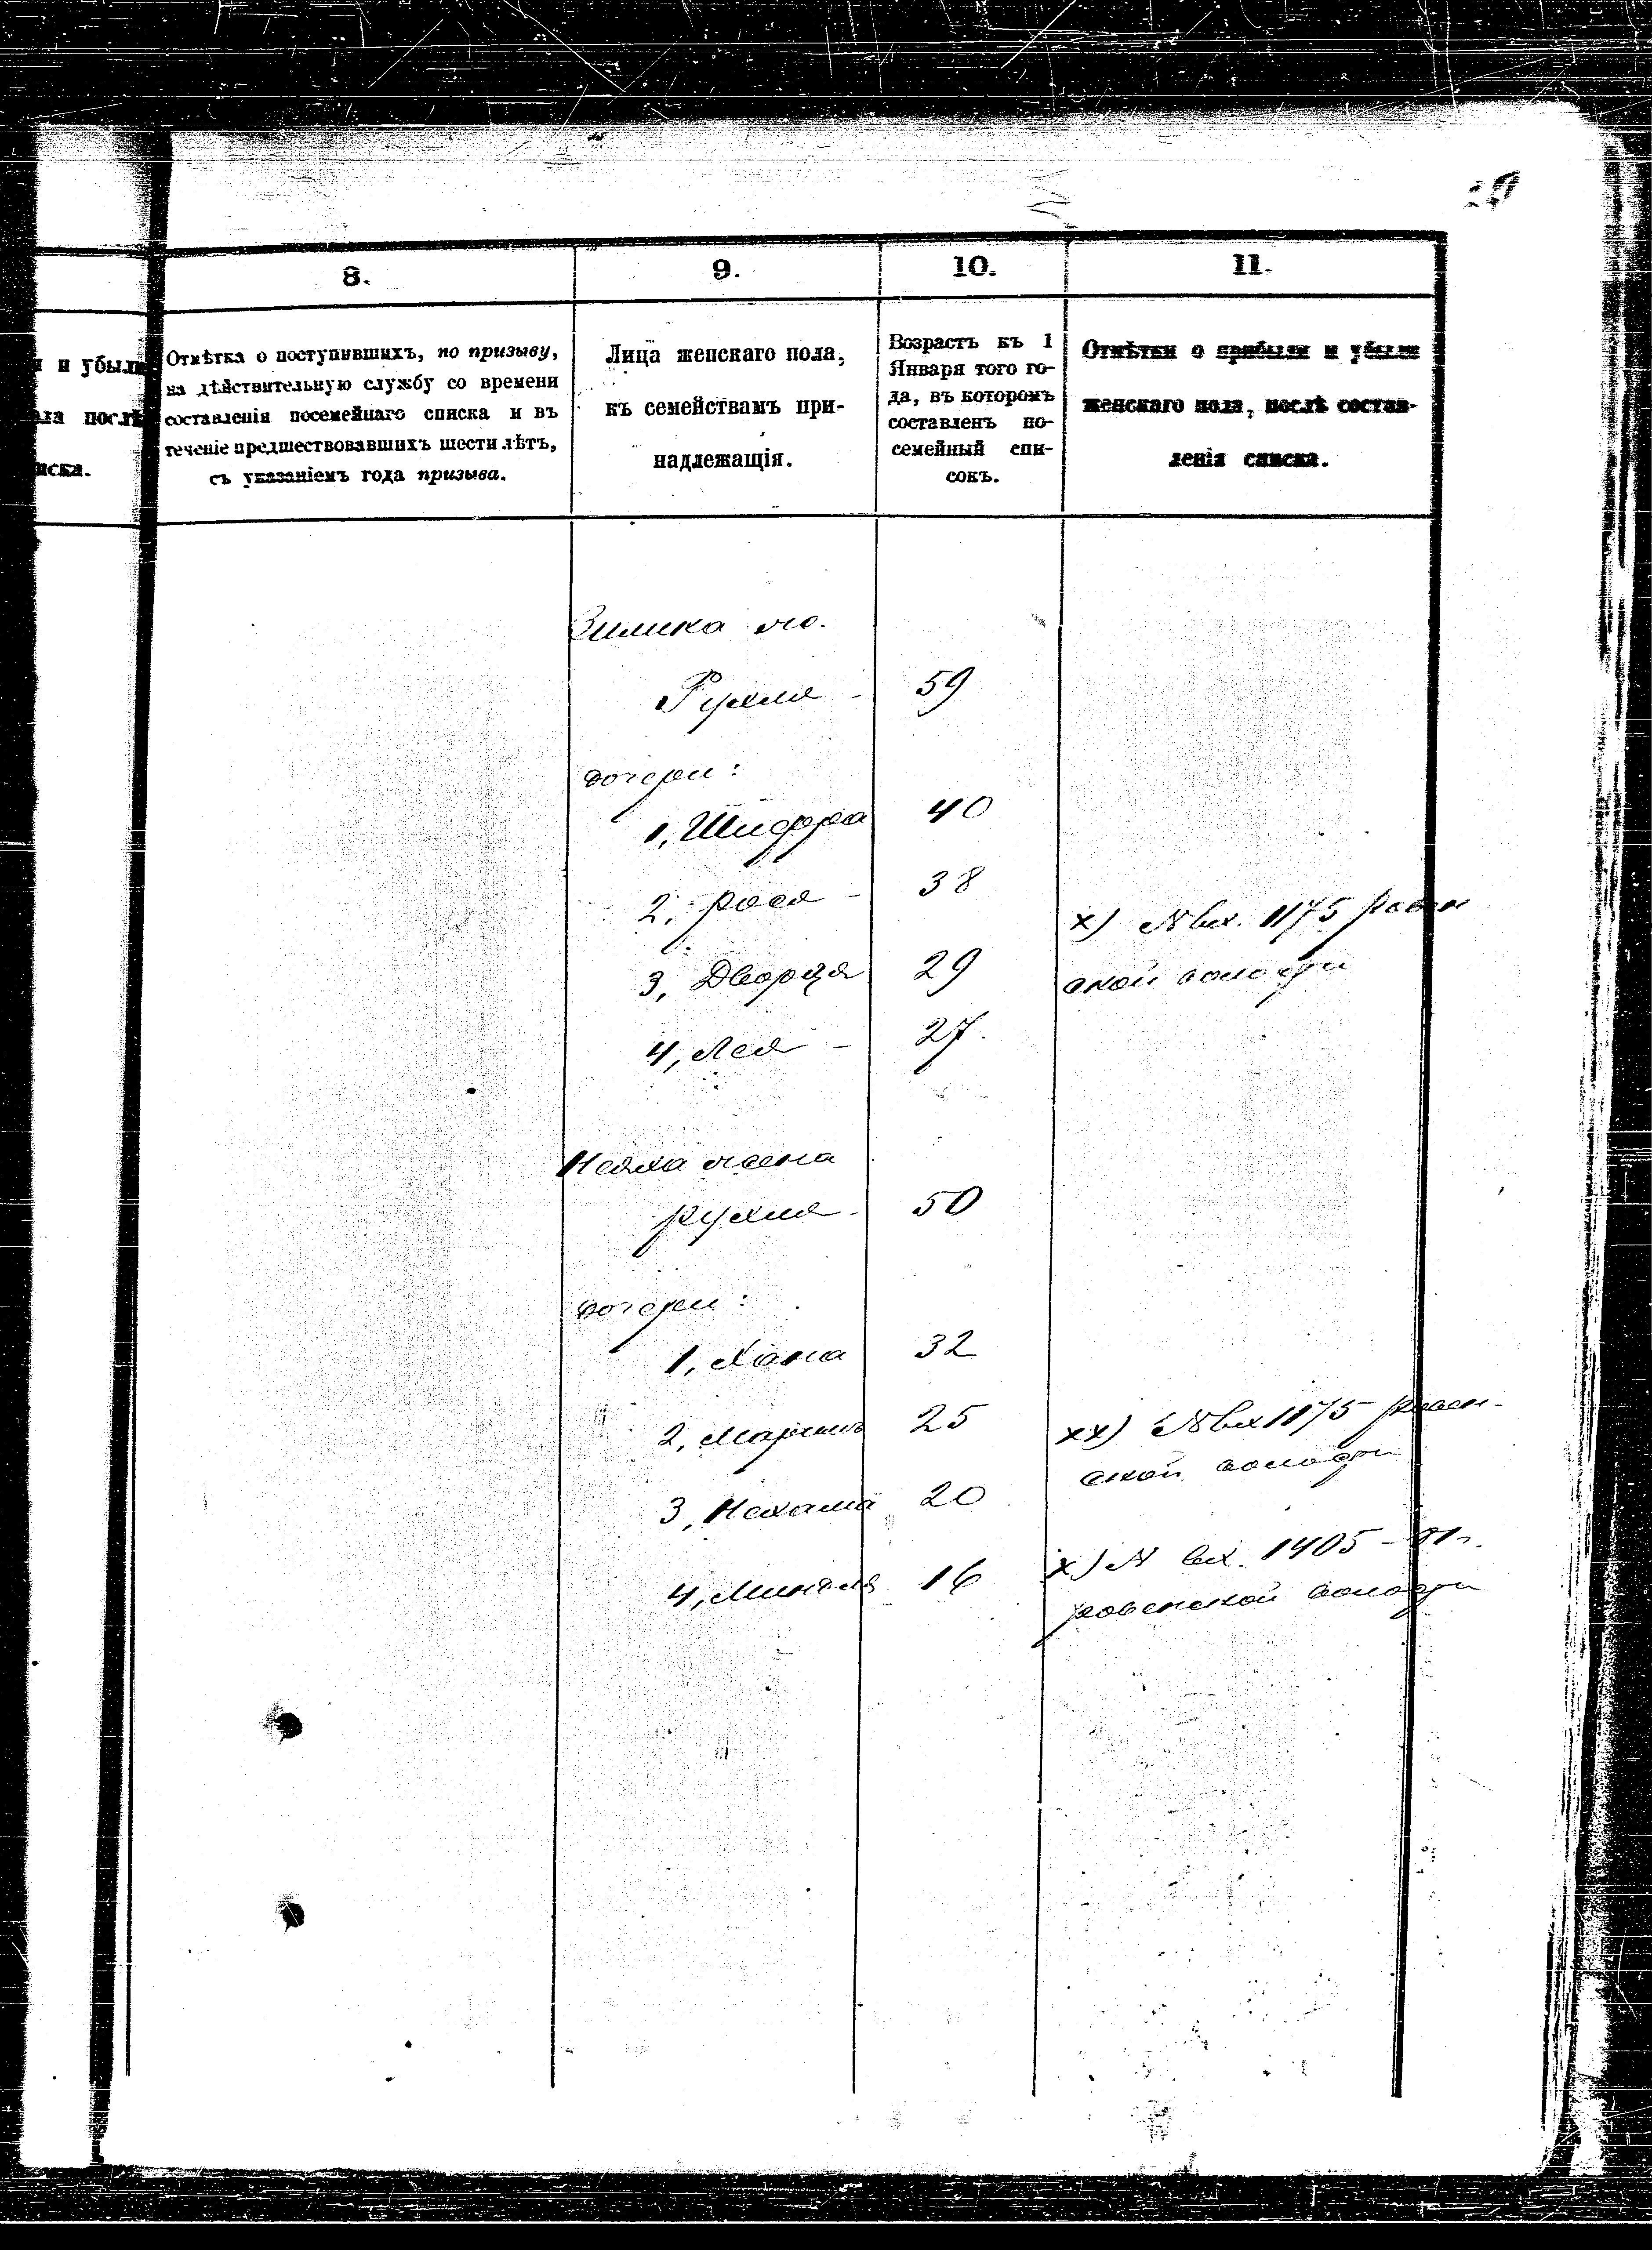 8.
9.
10.
11.
и убыли
ла послѣ
иска.
Отмѣтка о поступившихъ, по призыву,
на дѣйствительную службу со времени
составленія посемейнаго списка и въ
теченіе предшествовавшихъ шести лѣтъ,
съ указаніемъ года призыва.
Лица женскаго пола,
къ семействамъ при-
надлежащія.
Возрастъ къ 1
Января того го-
да, въ которомъ
составленъ по-
семейный спи-
сокъ.
Отмѣтки о прибыли и убыли
женскаго пола, послѣ состав-
ленія списка.
Зилика
Рухля - 59
дочери:
1, Шифра 40
2, Рося - 38
х) №вх. 1175
3, Дворя 29
ской волости
4, Лея - 27.
жена
Рухля - 50
дочери:
1, Хана 32
2, 25
хх) №вх 1175
ской волости
3, Нехама 20
х) № вх. 1405
4, Миндля 16
ровенской волости